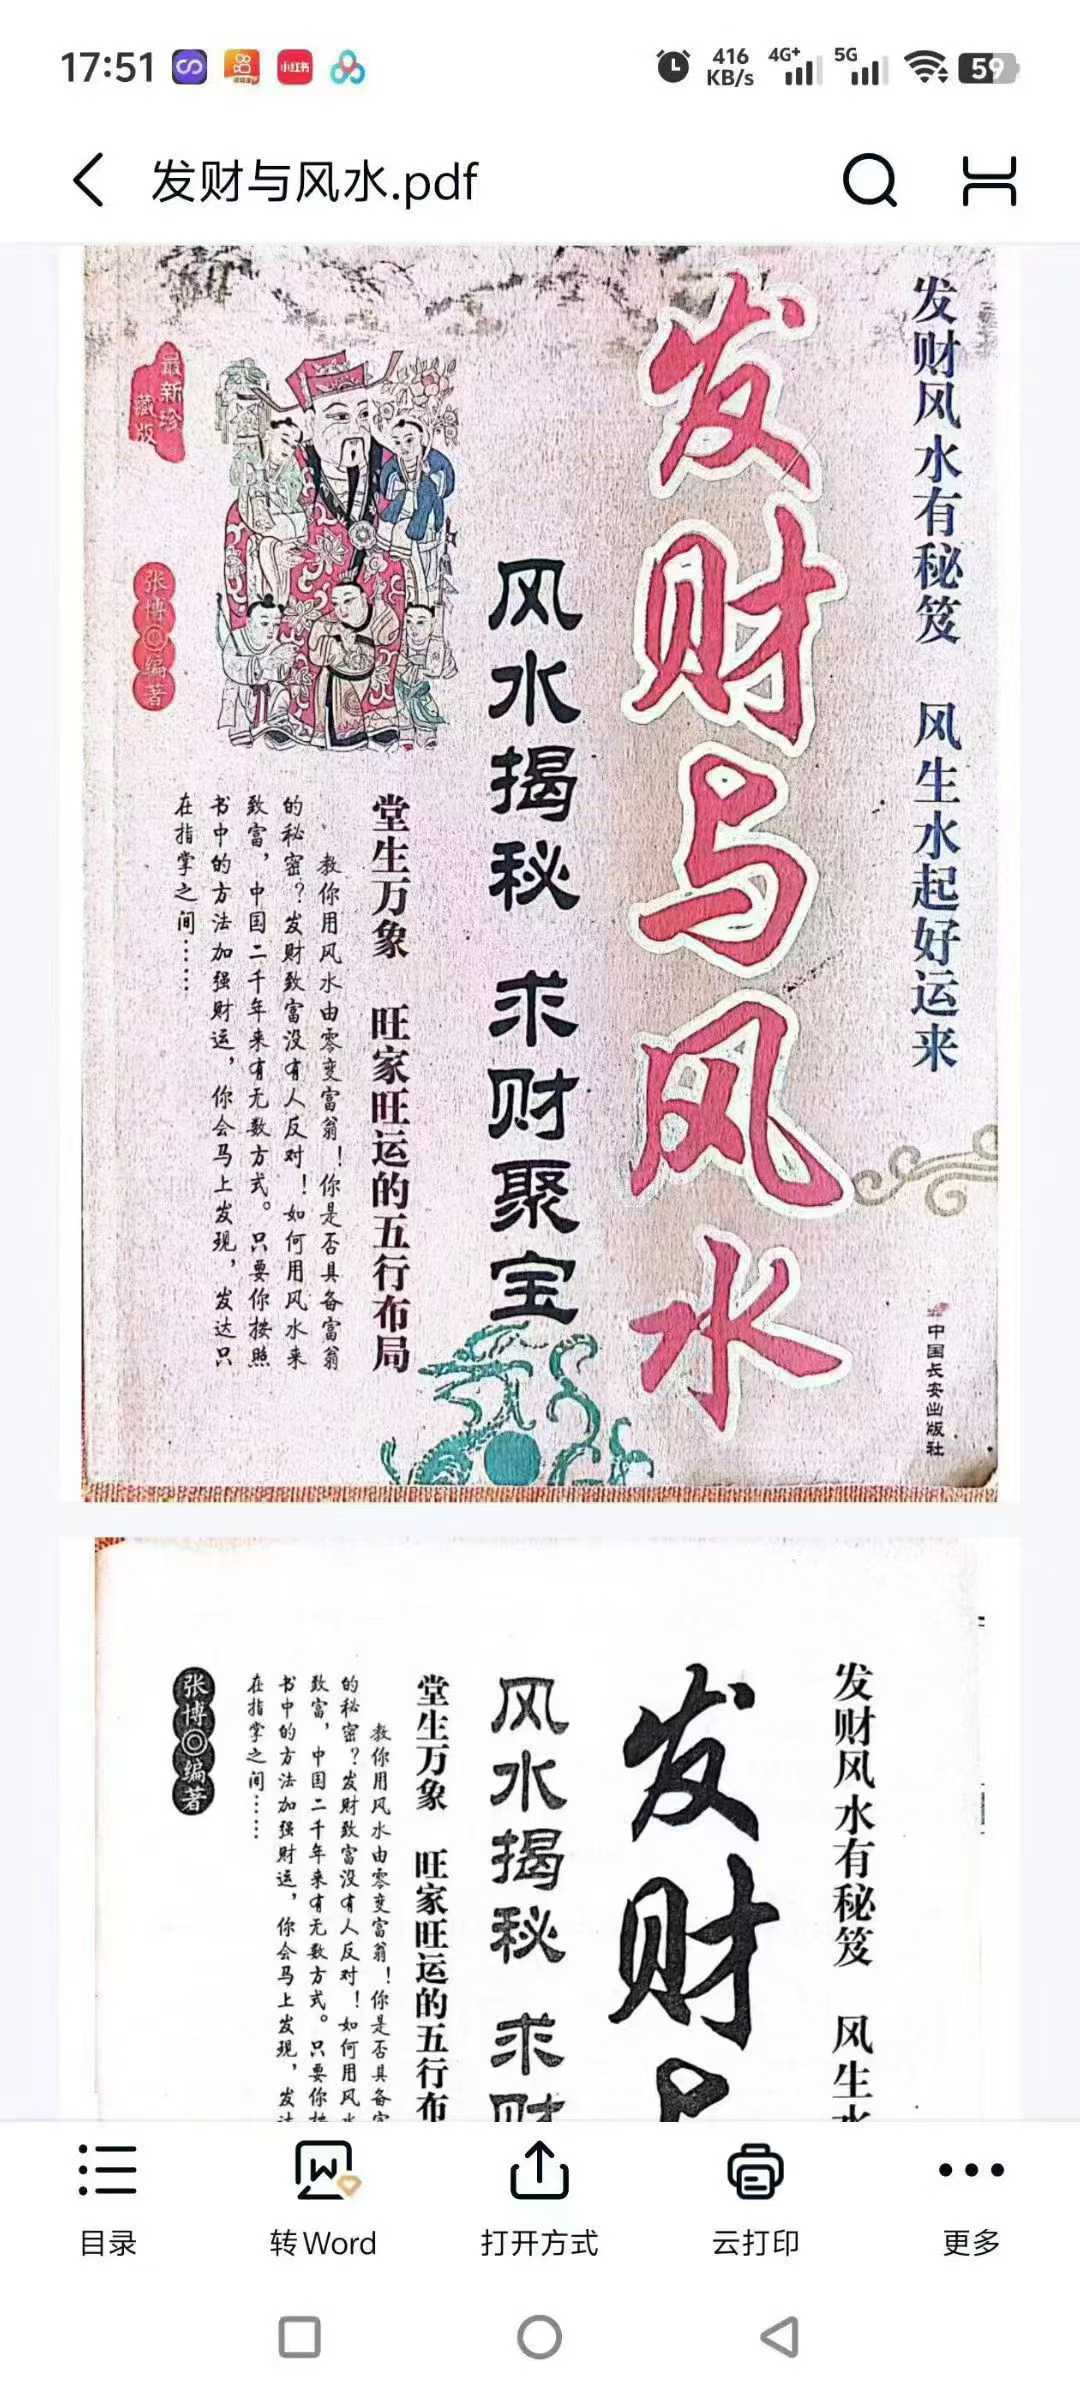 17:51
小红书
416
KB/s
4G+
5G
59
发财与风水.pdf
发财风水有秘笈 风生水起好运来
发财与风水
风水揭秘 求财聚宝
堂生万象 旺家旺运的五行布局
教你用风水由零变富翁！你是否具备富翁
的秘密？发财致富没有人反对！如何用风水来
致富，中国二千年来有无数方式。只要你按照
书中的方法加强财运，你会马上发现，发达只
在指掌之间……
最新珍
藏版
张博◎编著
中国长安出版社
发财风水有秘笈 风生水
发财与
风水揭秘 求财
堂生万象 旺家旺运的五行布
教你用风水由零变富翁！你是否具备富
的秘密？发财致富没有人反对！如何用风水
致富，中国二千年来有无数方式。只要你按
书中的方法加强财运，你会马上发现，发达
在指掌之间……
张博◎编著
目录
转Word
打开方式
云打印
更多